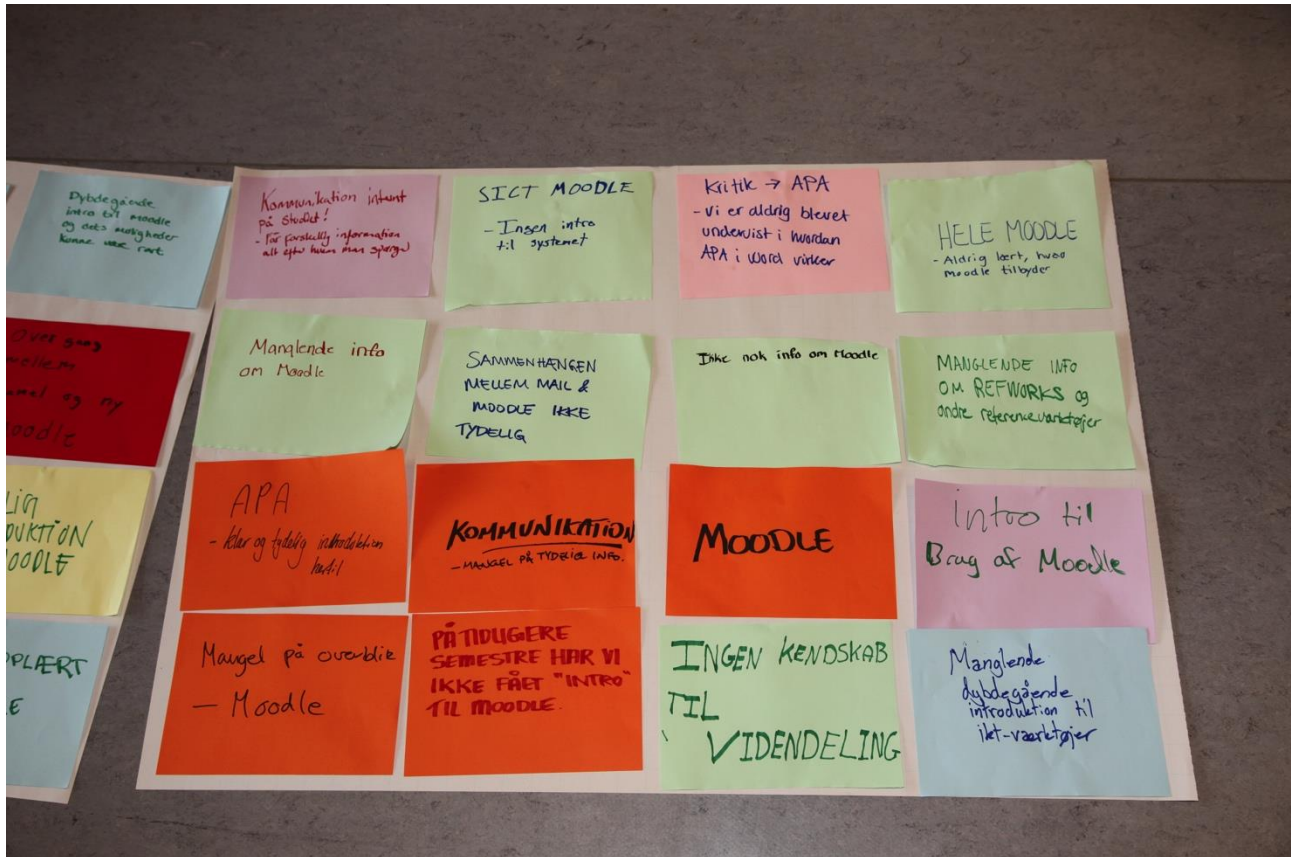 Dybdegående
intro til moodle
og dets muligheder
kunne være rart
Over gang
mellem
og ny
Moodle
MOODLE
OPLÆRT
Kommunikation internt
på studet!
- Får forskellig information
alt efter hvem man spørger
SICT MOODLE
- Ingen intro
til systemet
Kritik → APA
- Vi er aldrig blevet
undervist i hvordan
APA i word virker
HELE MOODLE
- Aldrig lært, hvad
moodle tilbyder
Manglende info
om Moodle
SAMMENHÆNGEN
MELLEM MAIL &
MOODLE IKKE
TYDELIG
Ikke nok info om Moodle
MANGLENDE INFO
OM REFWORKS og
andre referenceværktøjer
APA
- klar og tydelig introduktion
hertil
KOMMUNIKATION
- MANGEL PÅ TYDELIG INFO.
MOODLE
intro til
Brug af Moodle
Mangel på overblik
- Moodle
PÅ TIDLIGERE
SEMESTRE HAR VI
IKKE FÅET "INTRO"
TIL MOODLE.
INGEN KENDSKAB
TIL
VIDENDELING
Manglende
dybdegående
introduktion til
ikt-værktøjer